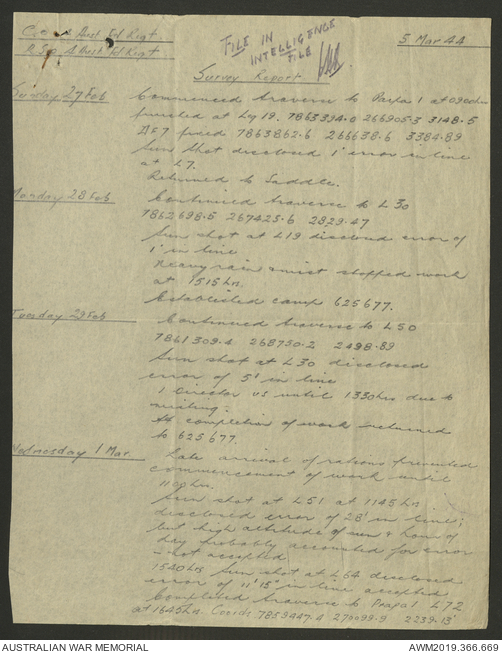 C.O. 4 Aust Fd Regt.
R.S.O 4 Aust Fd Regt
FILE IN
INTELLIGENCE
FILE
5 Mar 44
Survey Report
Sunday 27 Feb
Commenced traverse to Parpa 1 at 0900hrs
finished at Lg 19. 7863394.0 266905.3 3148.5
fixed 7863862.6 266638.6 3384.89
Sun shot disclosed 1' error in line
at L7.
Returned to Saddle.
Monday 28 Feb
Continued traverse to L30
7862698.5 267423.6 2829.47
Sun shot at L19 disclosed error of
1' in line
Heavy rain & mist stopped work
at 1515hrs.
Established camp 625677.
Tuesday 29 Feb
Continued traverse to L50
7861309.4 268750.2 2498.89
Sun shot at L30 disclosed
error of 5' in line
1 Director us until 1330hrs due to
misting.
At completion of work returned
to 625677.
Wednesday 1 Mar.
Late arrival of rations prevented
commencement of work until
1100hrs.
Sun shot at L51 at 1145hrs
disclosed error of 28' in line;
but high altitude of sun & hour of
day probably accounted for error
- not accepted
1540hrs Sun shot at L64 disclosed
error of 11'15" in line accepted
Completed traverse to Prapa 1 L72
at 1645hrs. Coords 7859447.4 270099.9 2239.13'
AUSTRALIAN WAR MEMORIAL
AWM2019.366.669